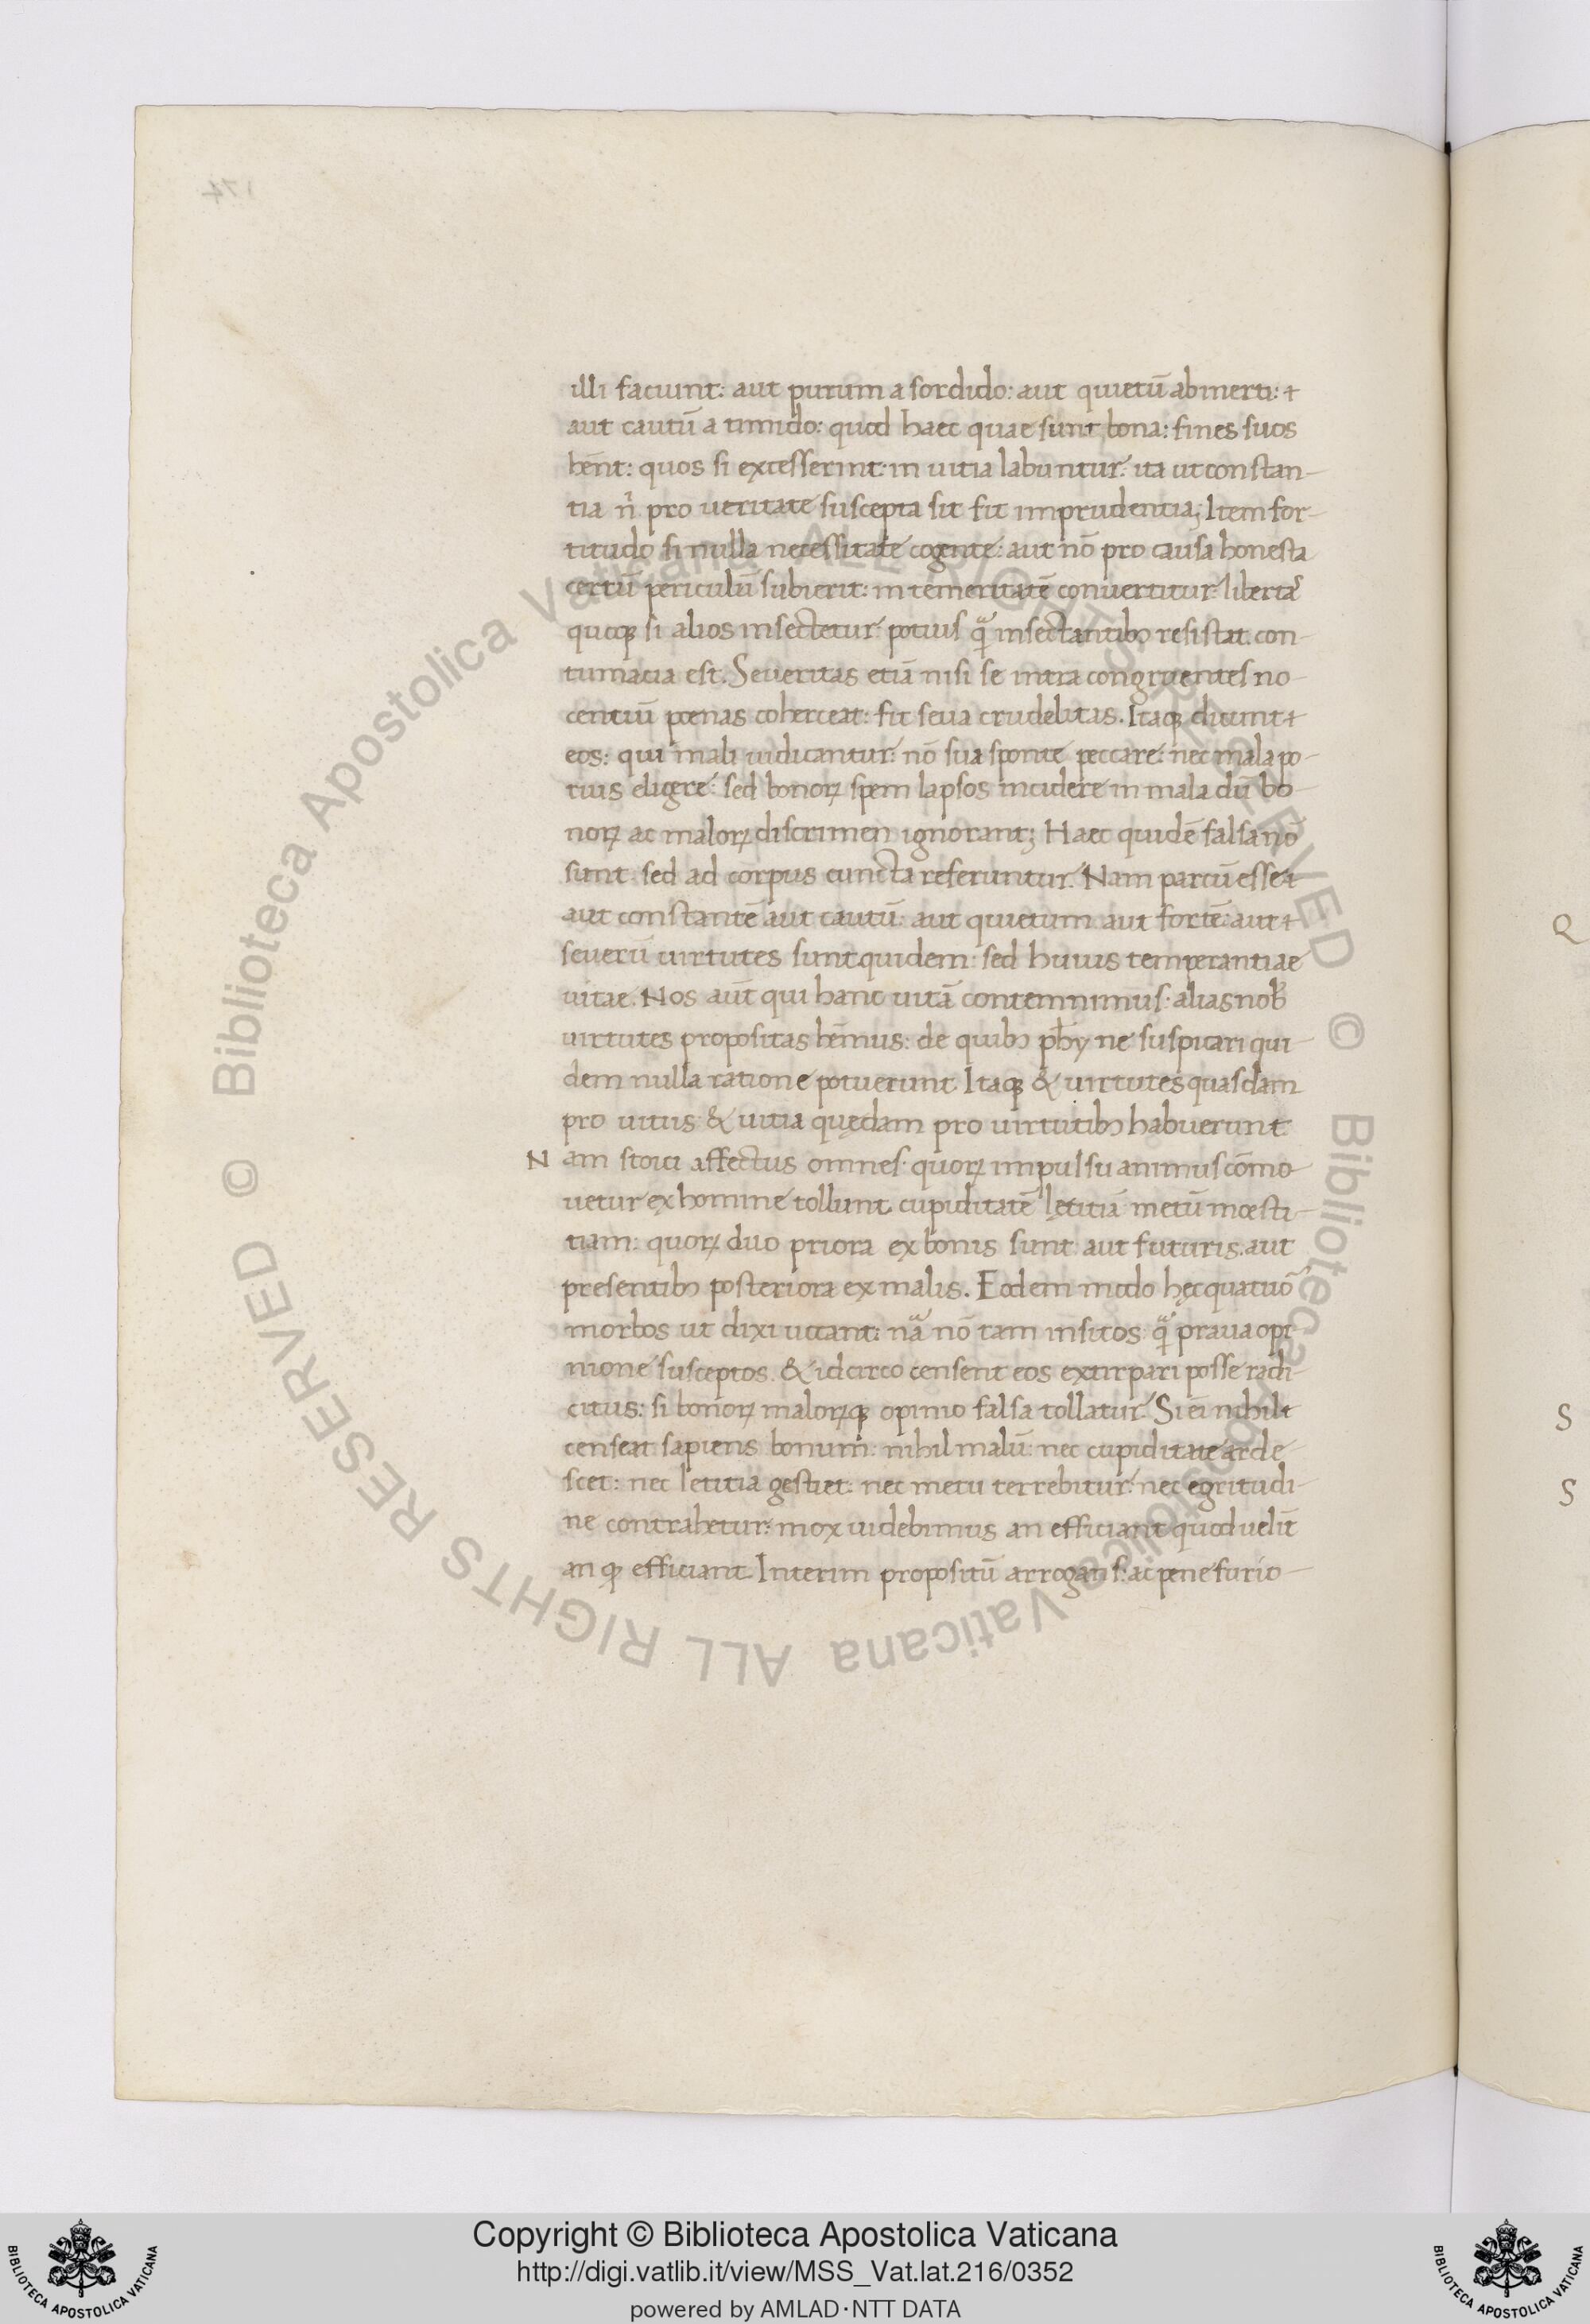 illi faciunt: aut purum a sordido: aut quietū ab inerti: ⁊
aut cautū a timido: quod haec quae sunt bona: fines suos
hēnt: quos si excesserint: in uitia labuntur: ita ut constan-
tia n̄ pro ueritate suscepta sit fit imprudentia; Item for-
titudo si nulla necessitate cogente: aut nō pro causa honesta
certū periculū subierit: in temeritatē conuertitur: liberta
quoqꝫ si alios insectetur: potius q̈ insectantibꝫ resistat. con-
tumacia est. Seueritas etiā nisi se intra congruentes no-
centiū poenas coherceat: fit seua crudelitas. Itaqꝫ dicunt ⁊
eos: qui mali iudicantur: nō sua sponte peccare: nec mala po-
tius eligere: sed bonoꝝ spem lapsos incidere in mala dū bo-
noꝝ ac maloꝝ discrimen ignorant; Haec quidē falsa nō
sunt. sed ad corpus cuncta referuntur. Nam parcū esse ⁊
aut constantē aut cautū: aut quietum. aut fortē: aut ⁊
seuerū uirtutes sunt quidem: sed huius temperantiae
uitae. Nos aūt qui hanc uitā contemnimus. alias nob̄
uirtutes propositas hēmus: de quibꝫ ph̄y ne suspicari qui
dem nulla ratione potuerunt. Itaqꝫ & uirtutes quasdam
pro uitiis & uitia quędam pro uirtutibꝫ habuerunt.
N am stoici affectus omnes. quoꝝ impulsu animus cōmo-
uetur ex homine tollunt. cupiditatē lętitiā metū moesti-
tiam: quoꝝ duo priora ex bonis sunt aut futuris. aut
presentibꝫ posteriora ex malis. Eodem modo hęc quatuō
morbos ut dixi uocant: nā nō tam insitos: q̈ praua opi-
nione susceptos. & idcirco censent eos extirpari posse radi-
citus: si bonoꝝ maloꝝqꝫ opinio falsa tollatur. Si ēi nihil ⁊
censeat sapiens bonum: nihil malū: nec cupiditate arde-
scet: nec letitia gestiet: nec metu terrebitur: nec egritudi-
ne contrahetur: mox uidebimus an efficiant quod uelīt
an qꝫ efficiant. Interim propositū arrogans: ac pene furio-
Q
S
S
174
© Biblioteca Apostolica Vaticana ALL RIGHTS RESERVED © Biblioteca Apostolica Vaticana ALL RIGHTS RESERVED
Copyright © Biblioteca Apostolica Vaticana
http://digi.vatlib.it/view/MSS_Vat.lat.216/0352
powered by AMLAD·NTT DATA
BIBLIOTECA APOSTOLICA VATICANA
BIBLIOTECA APOSTOLICA VATICANA